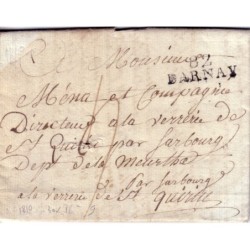 A Monsieur
82
BARNAY
Ména et Compagnie
Directeur a la verrerie de
St Quirin par Sarbourg
Dep de la Meurthe
par Sarbourg
a la verrerie de St Quirin